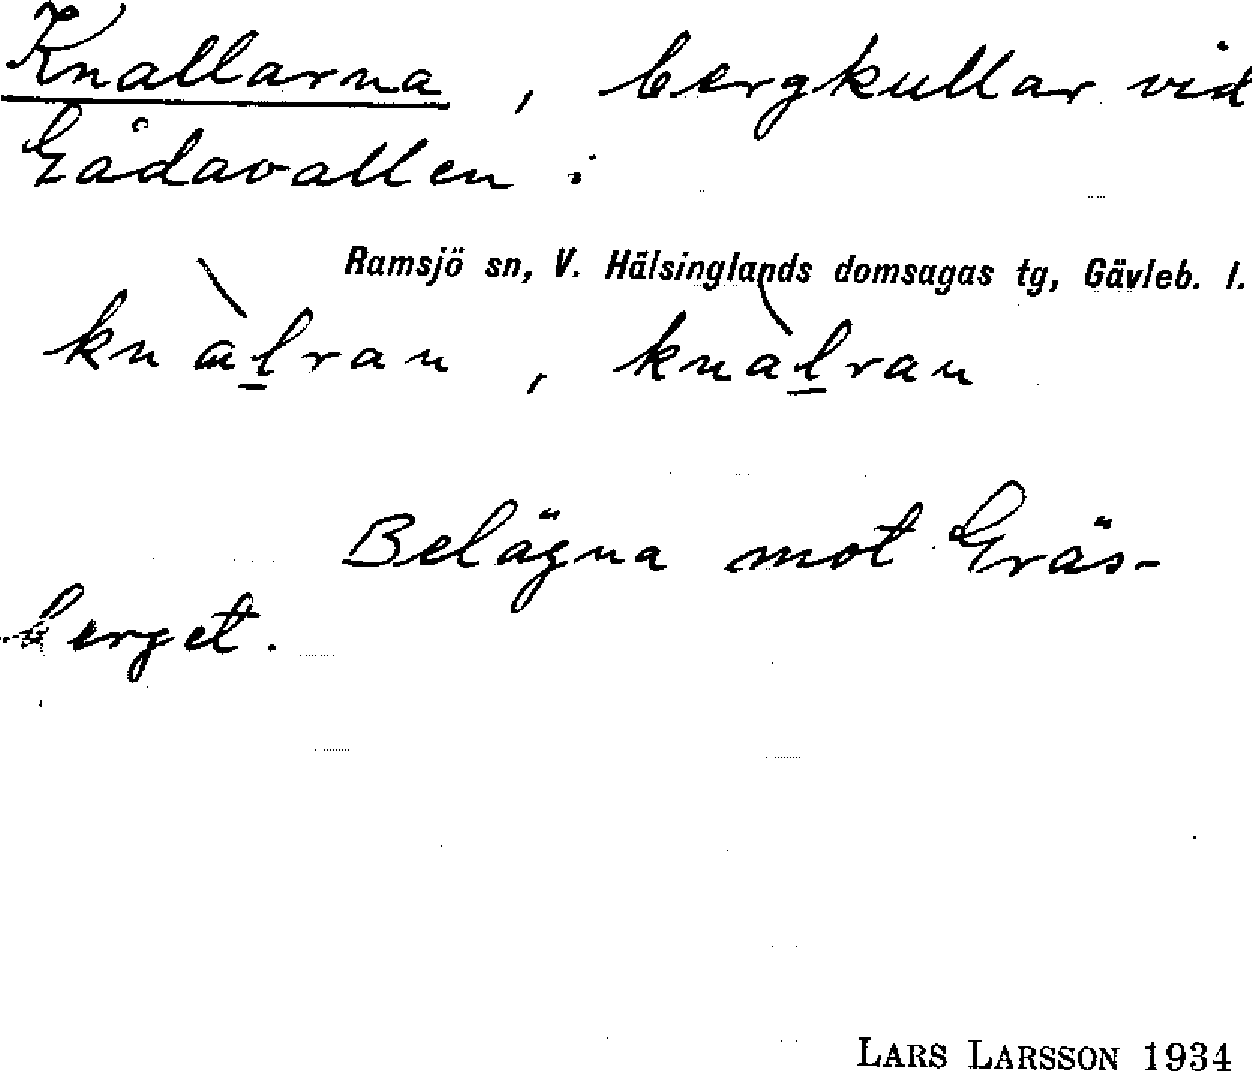 Knallarna, bergkullar vid
Gådavallen i
Ramsjö sn, V. Hälsinglands domsagas tg, Gävleb. l.
knàl̲ran, knàl̲ran
Belägna mot Gräs-
berget.
LARS LARSSON 1934